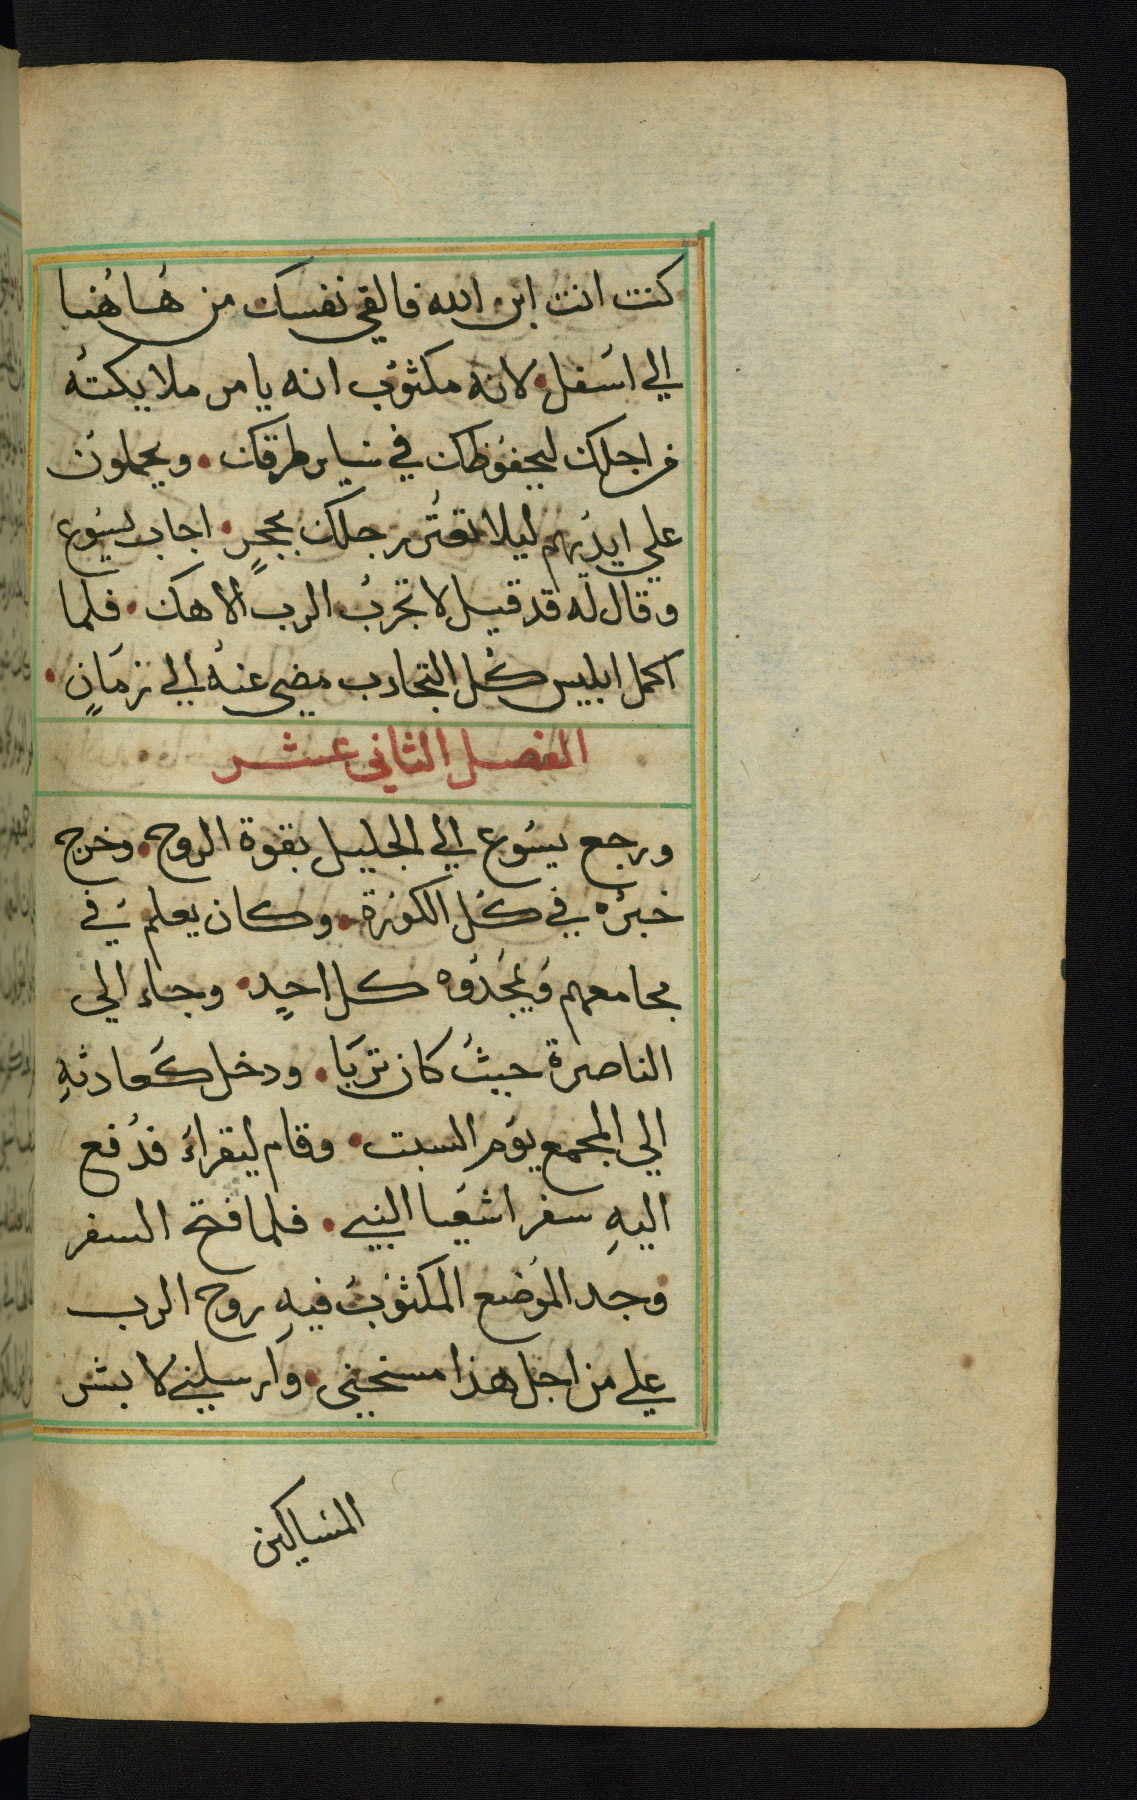 كنت انت ابن الله فالقي نفسك من هاهنا
الي اسفل لانه مكثوب انه يامر ملايكته
من اجلك ليحفوظك في ساير طرقك • ويحملون
علي ايديهم ليلا تعثر رجلك بحجرٍ • اجاب يسوع
وقال له قد قيل لا تجرب الرب الاهك • فلما
اكمل ابليس كل التجارب مضي عنه الي زمانٍ •
الفصل الثاني عشر
ورجع يسوع الي الجليل بقوة الروح • وخرج
خبره في كل الكورة • وكان يعلم في
مجامعهم ويمجدوه كل احدٍ • وجاء الي
الناصرة حيث كان تربا • ودخل كعادثهِ
الي المجمع يوم السبت • وقام ليقراء فدفع
اليهِ سفر اشعيا النبي • فلما فتح السفر
وجد الموضع المكثوب فيهِ روح الرب
علي من اجل هذا مسحني • وارسلني لابشر
المساكين